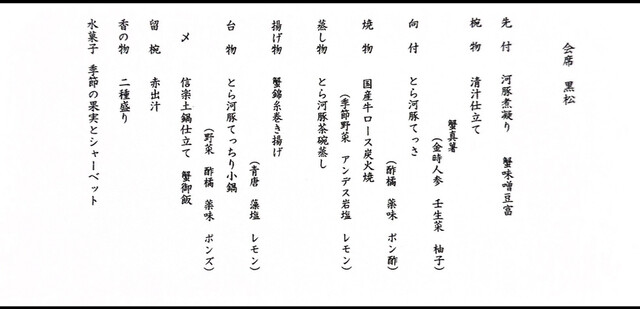 会席 黒松
先付 河豚煮凝り 蟹味噌豆富
椀物 清汁仕立て
蟹真薯
(金時人参 壬生菜 柚子)
向付 とら河豚てっさ
(酢橘 薬味 ポン酢)
焼物 国産牛ロース炭火焼
(季節野菜 アンデス岩塩 レモン)
蒸し物 とら河豚茶碗蒸し
揚げ物 蟹錦糸巻き揚げ
(青唐 藻塩 レモン)
台物 とら河豚てっちり小鍋
(野菜 酢橘 薬味 ポンズ)
〆 信楽土鍋仕立て 蟹御飯
留椀 赤出汁
香の物 二種盛り
水菓子 季節の果実とシャーベット